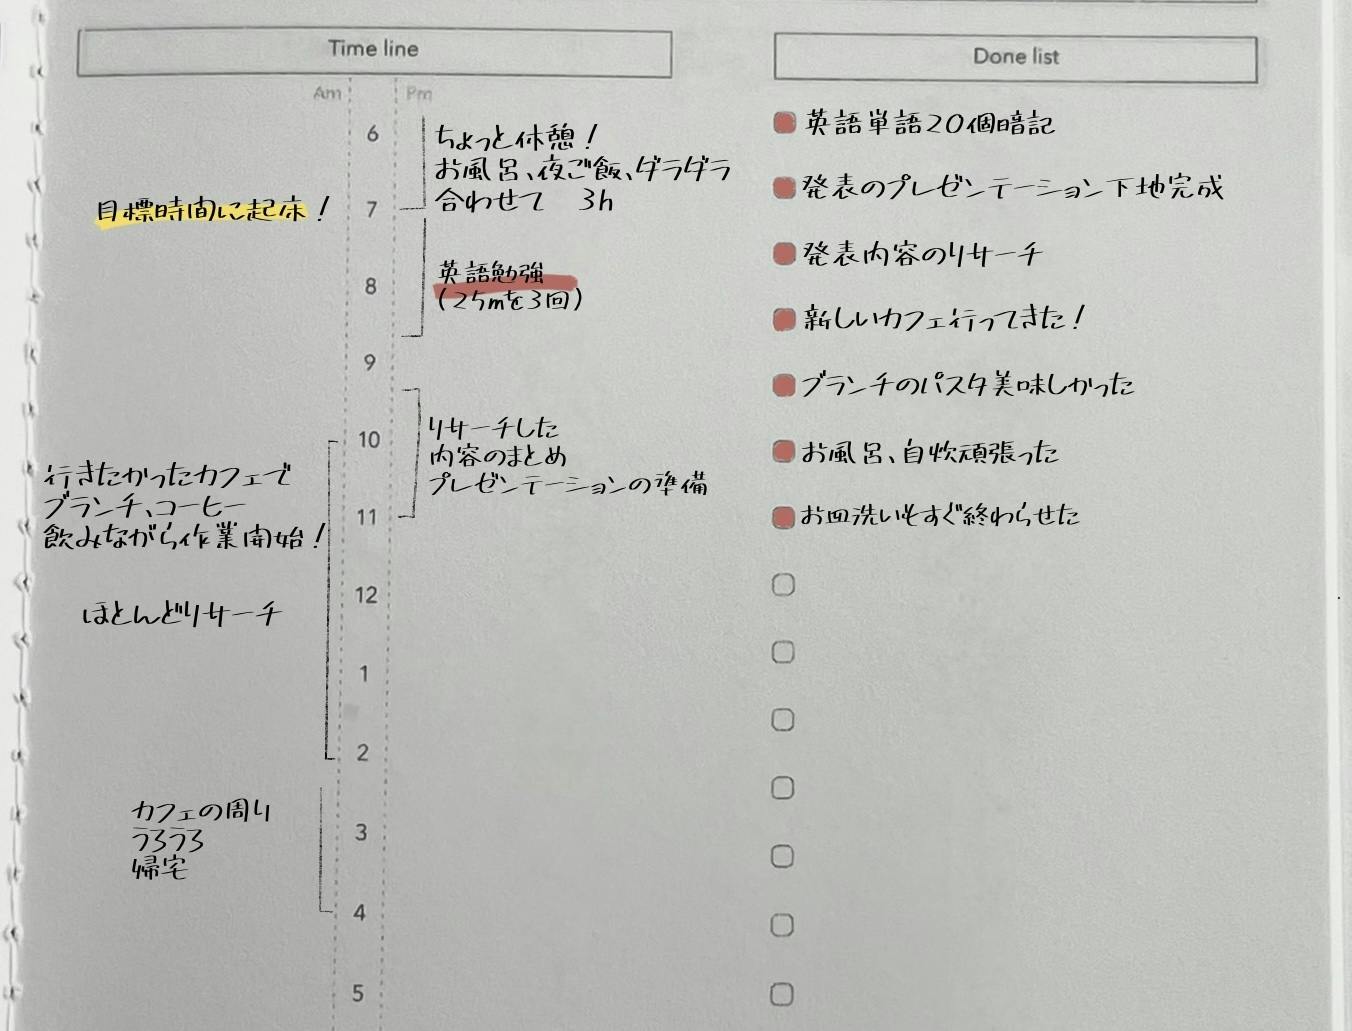 Time line
Am
Pm
6
7
8
9
10
11
12
1
2
3
4
5
目標時間に起床！
行きたかったカフェで
ブランチ、コーヒー
飲みながら作業開始！
ほとんどリサーチ
カフェの周り
うろうろ
帰宅
ちょっと休憩！
お風呂、夜ご飯、ダラダラ
合わせて 3h
英語勉強
(25mを3回)
リサーチした
内容のまとめ
プレゼンテーションの準備
Done list
英語単語20個暗記
発表のプレゼンテーション下地完成
発表内容のリサーチ
新しいカフェ行ってきた！
ブランチのパスタ美味しかった
お風呂、自炊頑張った
お皿洗いもすぐ終わらせた